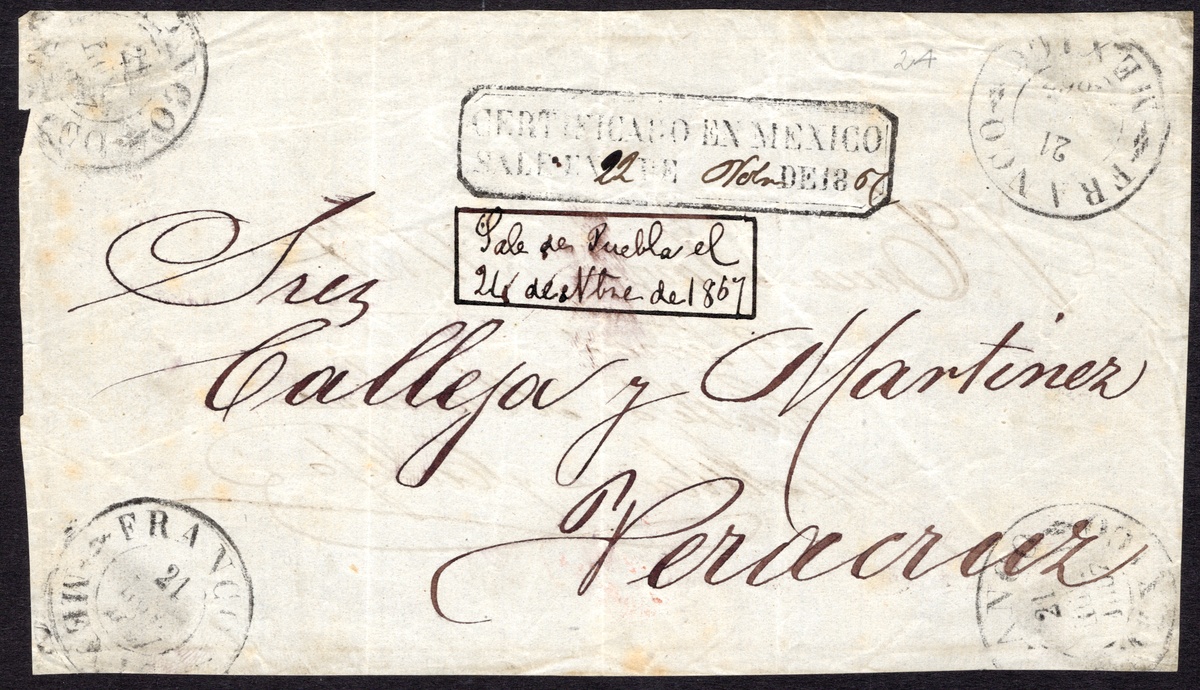 24
FRANCO MEXICO
21
CERTIFICADO EN MEXICO
SALE EN 22 DE Nobre DE 1867
Sale de Puebla el
24 de Nbre de 1867
Sres
Calleja y Martinez
Veracruz
FRANCO
21
21